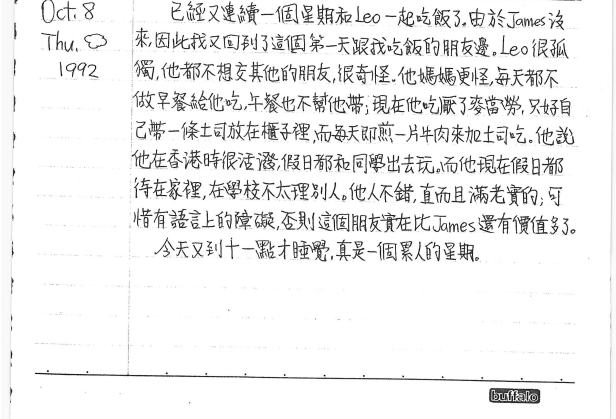 Oct. 8
Thu.
1992
已經又連續一個星期和Leo一起吃飯了。由於James沒
來,因此我又回到了這個第一天跟我吃飯的朋友邊。Leo很孤
獨,他都不想交其他的朋友,很奇怪。他媽媽更怪,每天都不
做早餐給他吃,午餐也不幫他帶;現在他吃厭了麥當勞,只好自
己帶一條土司放在櫃子裡,而每天即煎一片牛肉來加土司吃。他說
他在香港時很活潑,假日都和同學出去玩。而他現在假日都
待在家裡,在學校不太理別人。他人不錯,直而且滿老實的;可
惜有語言上的障礙,否則這個朋友實在比James還有價值多了。
今天又到十一點才睡覺,真是一個累人的星期。
buffalo